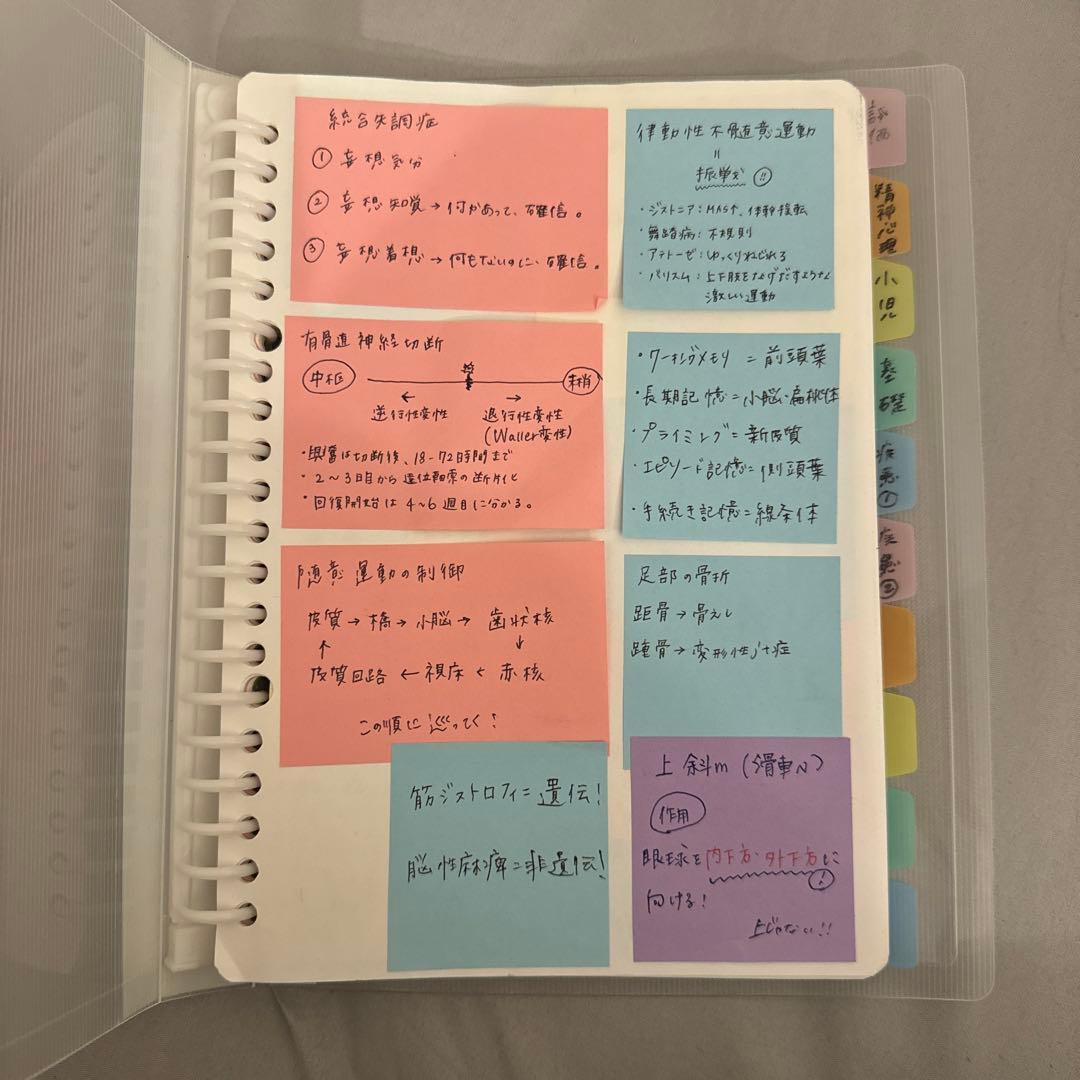 統合失調症
① 妄想気分
② 妄想知覚→何かあって、確信。
③ 妄想着想→何もないのに、確信。
律動性不随意運動
=
振戦 !!
・ジストニア:MAS↑、体幹捻転
・舞踏病:不規則
・アテトーゼ:ゆっくりねじれる
・バリスム:上下肢をなげだすような
激しい運動
有骨道神経切断
中枢
末梢
← →
逆行性変性 退行性変性
(Waller変性)
・興奮は切断後、18-72時間まで
・2~3日目から遠位軸索の断片化
・回復開始は4~6週目に分かる。
・ワーキングメモリ=前頭葉
・長期記憶=小脳・扁桃体
・プライミング=新皮質
・エピソード記憶=側頭葉
・手続き記憶=線条体
随意運動の制御
皮質→橋→小脳→歯状核
↑ ↓
皮質回路←視床<赤核
この順に巡ってく!
足部の骨折
距骨→骨えし
踵骨→変形性j+症
筋ジストロフィ=遺伝!
脳性麻痺=非遺伝!
上斜m(滑車N)
作用
眼球を内下方・外下方に
向ける!
上じゃない!!
評価
精神心理
小児
基礎
疾患①
疾患②